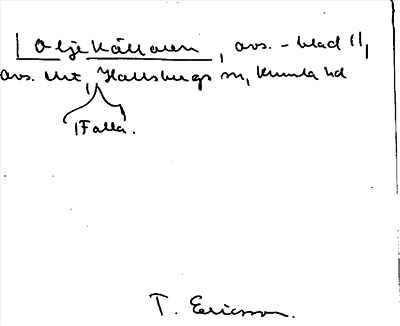 Oljekällaren, avs. - blad 11,
avs. Unt, Hallsbergs sn, Kumla hd
Falla.
T. Ericsson.